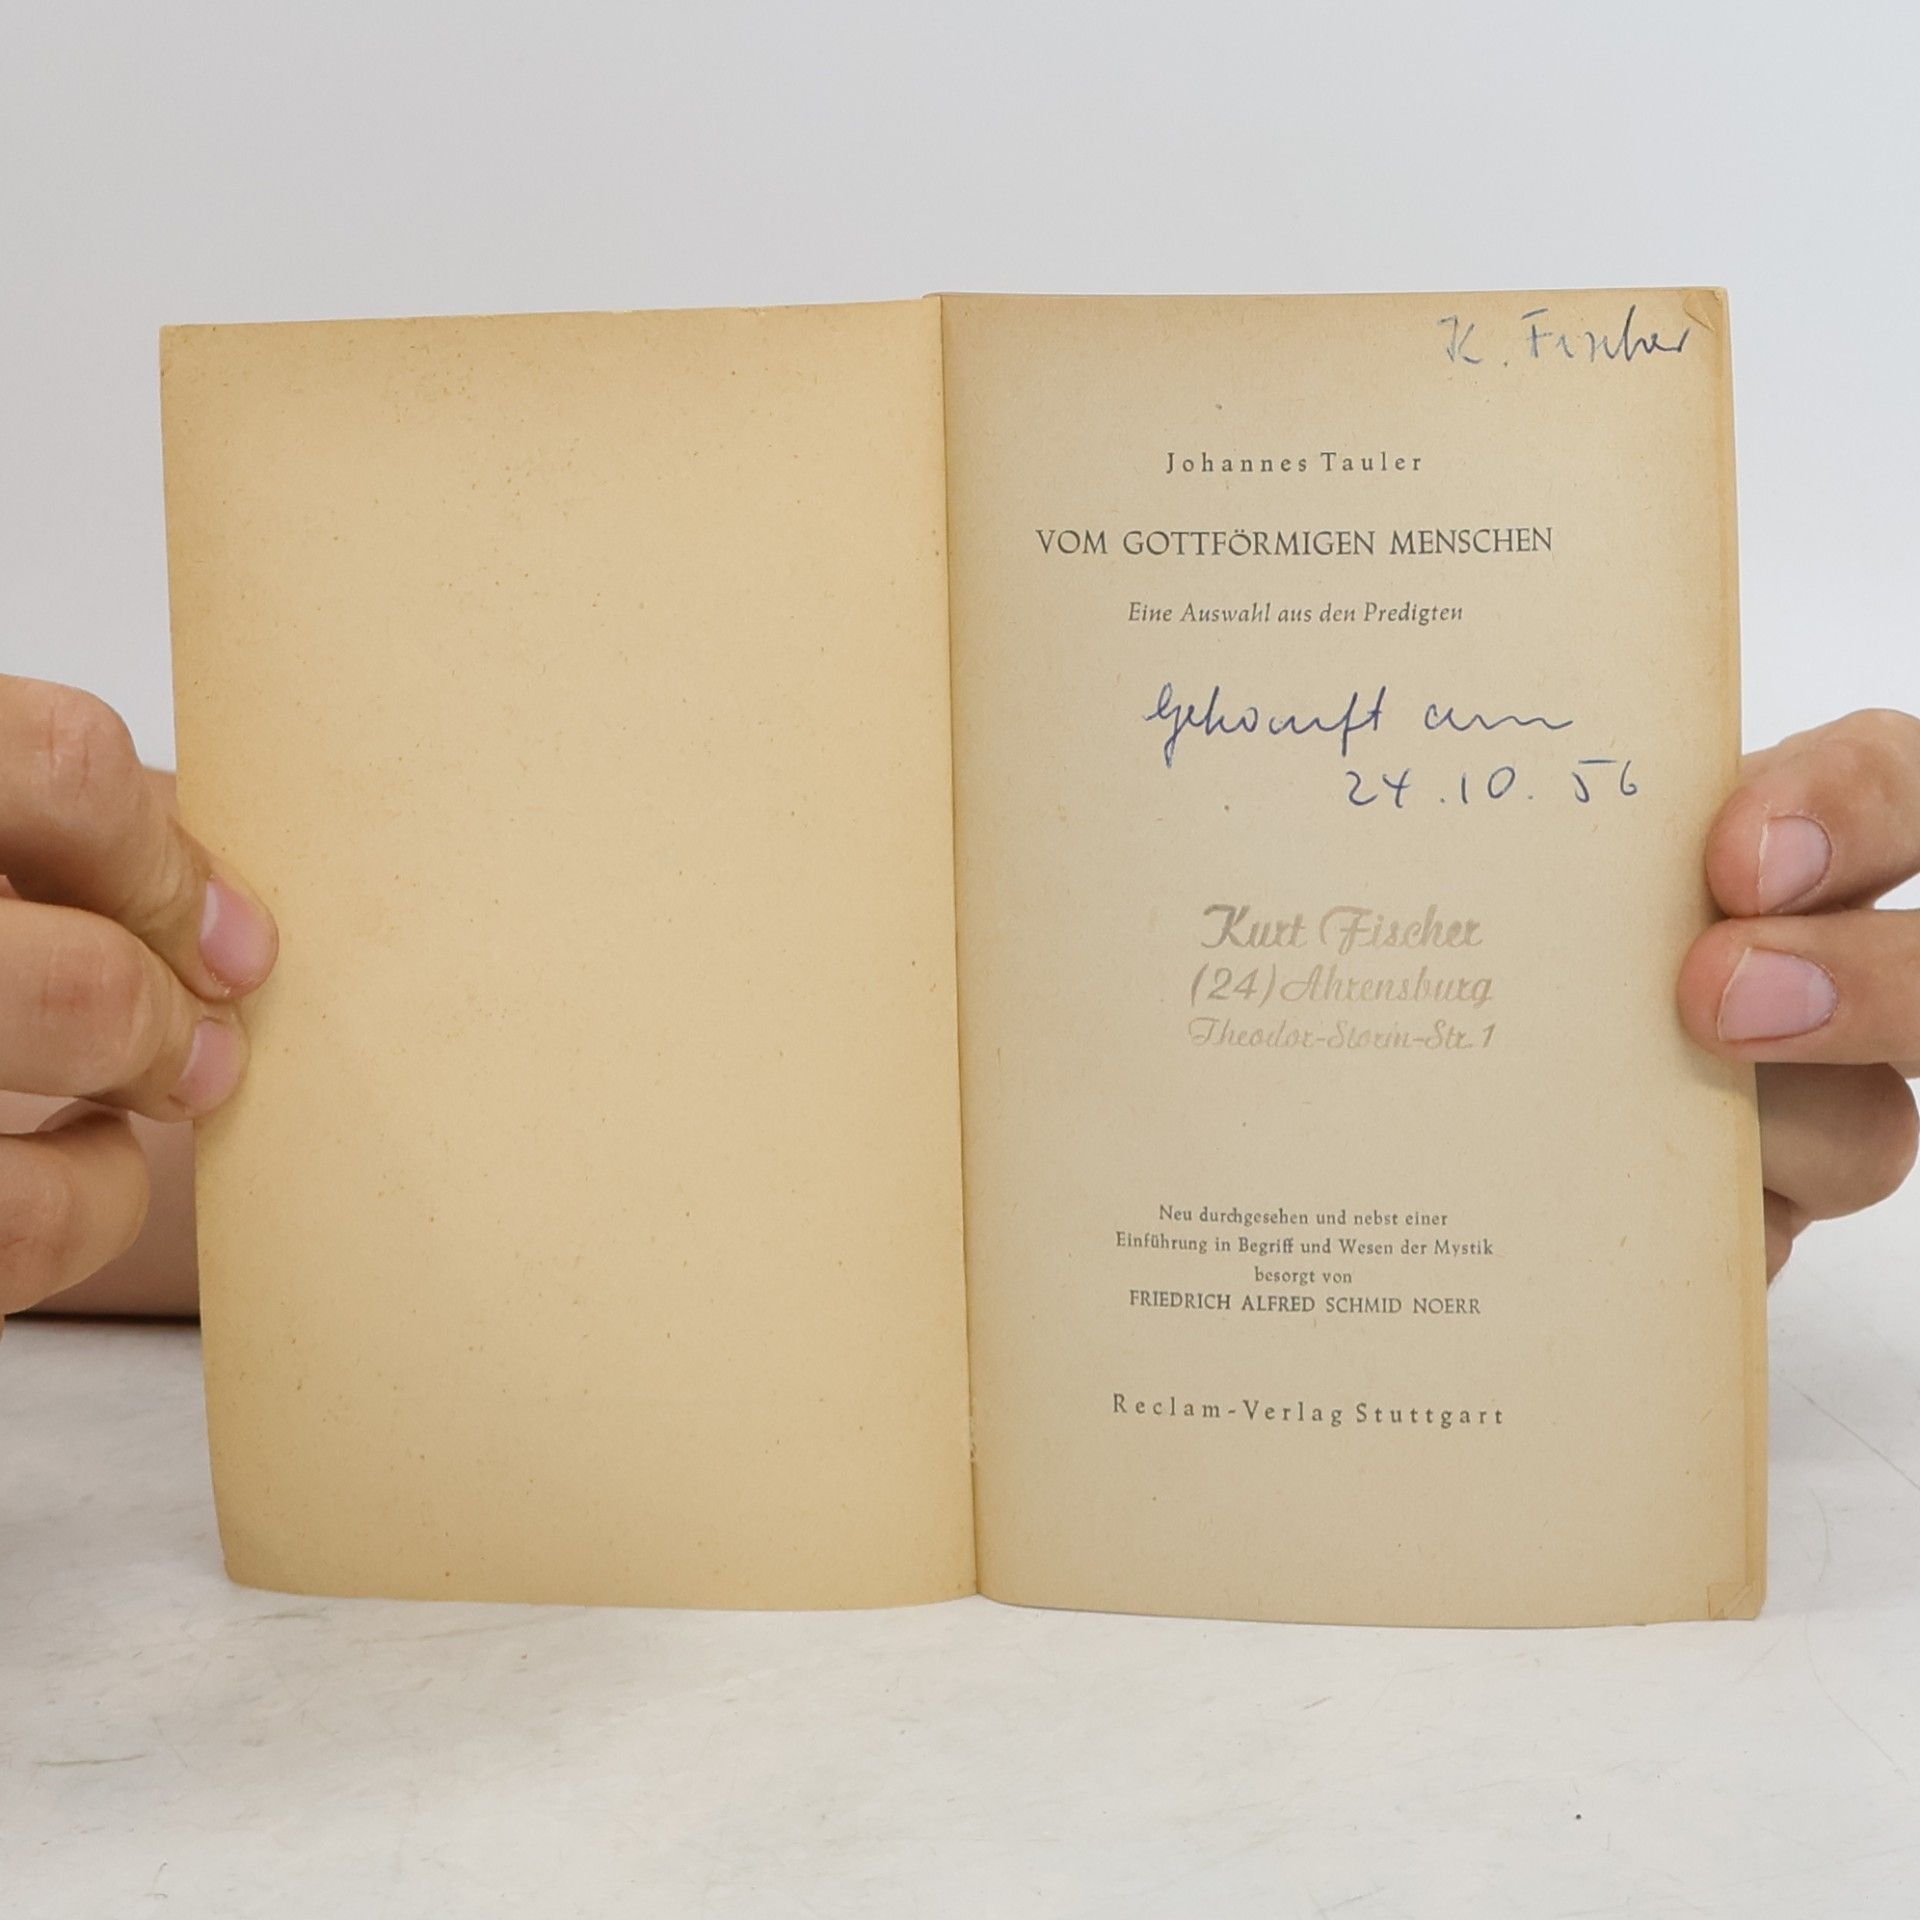 K. Fischer
Johannes Tauler
VOM GOTTFÖRMIGEN MENSCHEN
Eine Auswahl aus den Predigten
Gekauft am
24.10.56
Kurt Fischer
(24) Ahrensburg
Theodor-Storm-Str. 1
Neu durchgesehen und nebst einer
Einführung in Begriff und Wesen der Mystik
besorgt von
FRIEDRICH ALFRED SCHMID NOERR
Reclam-Verlag Stuttgart